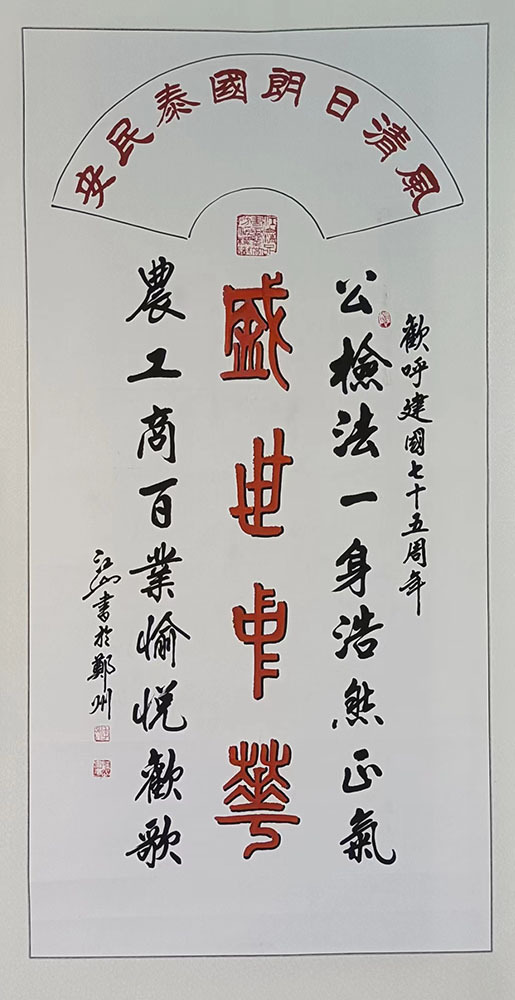 風清日朗國泰民安
歡呼建國七十五周年
公檢法一身浩然正氣
盛世中華
農工商百業愉悅歡歌
江山書於鄭州